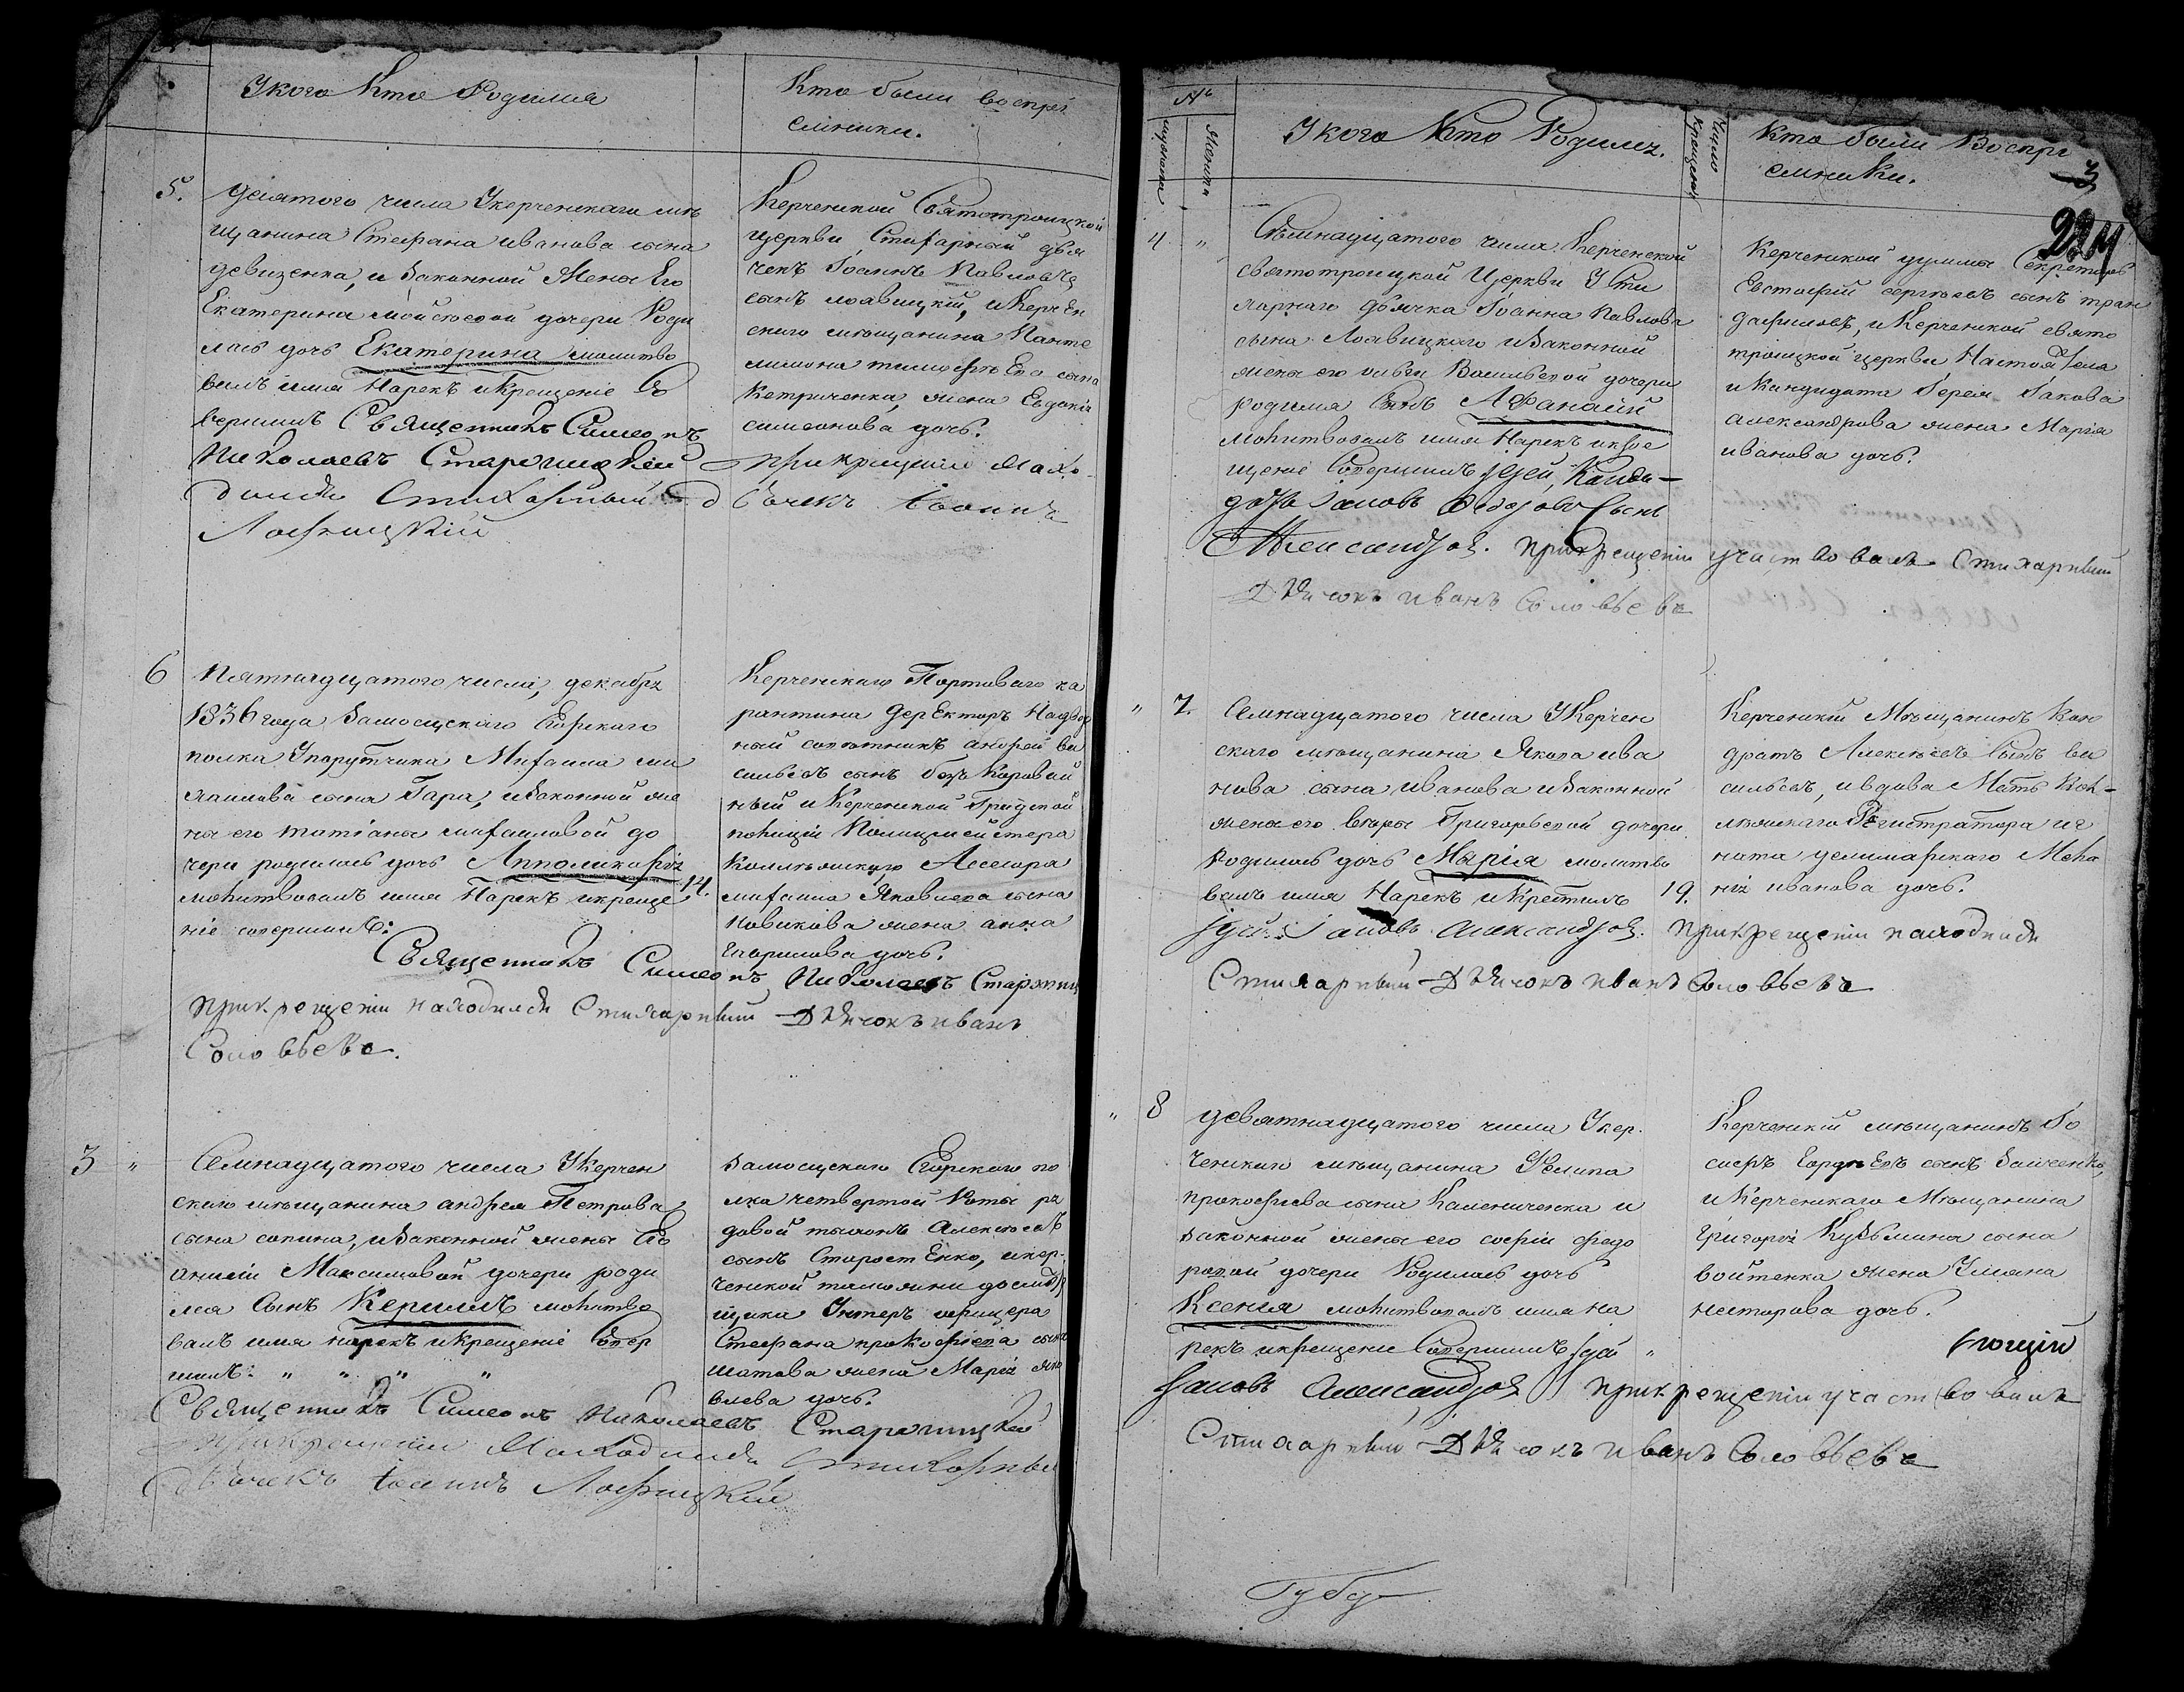 У кого Кто Родился
Кто были воспрі
емники.
5.
десятого числа У керченскаго мѣ
щанина Стефана иванова сына
девизенка, и Законной Жены Его
Екатерина мойсеевой дочери Роди
лась дочь Екатерина молитво
валъ имя Нарекъ и Крещеніе Со
вершилъ Священникъ Симеонъ
Николаевъ Старошицкій
Керченской Святотроицкой
церкви Стихарный дья
чекъ Іоаннъ Павловъ
сынъ лоавицкій, и Керчен
скаго мѣщанина Панте
лимона тимофѣева сына
Кетриченка, жена Евдокія
симеонова дочь.
при крещеніи Нахо
дился Стихарный дьячекъ Іоаннъ
6
Пятнадцатого числа, декабря
1836 года Замосцскаго Егорскаго
полка У порутчика Михаила ми
хаилова сына Гара, и Законной же
ны его татіаны михаиловой до
чери родилась дочь Апполинарія
молитвовалъ имя Нарекъ и креще 14.
ніе совершилъ:
Священникъ Симеонъ Николаевъ
при крещеніи находился Стихарный Дьячокъ иванъ
Соловьевъ.
Керченскаго Портоваго ка
рантина Деректоръ Надвор
ный совѣтникъ андрей ва
сильевъ сынъ безъ Коровай
ный и Керченской Градской
полиціи Полицмейстера
Колѣжскаго Асесора
михаила Яковлева сына
Новикова жена анна
гаврилова дочь.
3 "
Семнадцатого числа У Керчен
скаго мѣщанина андрея Петрова
сына сопина, и Законной жены Его
анисіи Максимовой дочери роди
лся Сынъ Керіилъ молитво
валъ имя нарекъ и крещеніе Совер
шилъ: " " " "
Священникъ Симеонъ Николаевъ Старошицкій
при крещеніи Находился Стихарный
дьячекъ Іоаннъ
Замосцскаго Егорскаго по
лка четвертой Роты ря
довой тихонъ Алексѣевъ
сынъ Старостенко, и кер
ченской таможни досмотр
щика Унтеръ офицера
Стефана прокофіева сына
шатова жена Марія яко
влева дочь.
№
мущеска
Женска
У кого Кто Родилсъ.
Число
крещенія
Кто были Воспрі
емники.
3
224
4 "
Семнадцатого числа Керченской
святотроицкой Церкви У Сти
харнаго дьячка Іоанна Павлова
сына Лоавицкаго и Законной
жены его ольги Васильевой дочери
родился Сынъ Афанасій
Молитвовалъ имя Нарекъ и кре
щеніе Совершилъ Іерей, Канди
датъ Іаковъ Федоровъ Сынъ
Александровъ. при крещеніи участвовалъ Стихарный
Дьячокъ иванъ Соловьевъ
Керченской думы Секретарь
Евстафій сергѣевъ сынъ тран
дафиловъ, и Керченской свято
троицкой церкви Настоятеля
и Кандидата Іерея Іакова
александрова жена Марія
иванова дочь.
" 7.
Семнадцатого числа У Керчен
скаго мѣщанина Якова ива
нова сына иванова и Законной
жены его вѣры Григорьевой дочери
Родилась дочь Марія молитво
валъ имя Нарекъ и Крестилъ 19.
Іерей Іаковъ Александровъ. при крещеніи находился
Стихарный Дьячокъ иванъ Соловьевъ
Керченскій Мѣщанинъ Кон
дратъ Алексѣевъ Сынъ ва
сильевъ, и вдова Мать Кол-
лѣжскаго Регистратора иг
ната Мела
нія иванова дочь.
" 8
девятнадцатого числа У кер.
ченскаго мѣщанина Филипа
прокофіева сына Калениченка и
законной жены его софіи федо
ровой дочери Родилась дочь
Ксенія молитвовалъ имя на
рекъ и крещеніе Совершилъ Іерей "
Іаковъ Александровъ при крещеніи участвовалъ
Стихарный Дьячокъ иванъ Соловьевъ
Керченскій мѣщанинъ Іо
сифъ гордѣевъ сынъ Зайченко,
и Керченскаго Мѣщанина
Григорія Кузьмина сына
войтенка жена Уляна
несторова дочь.